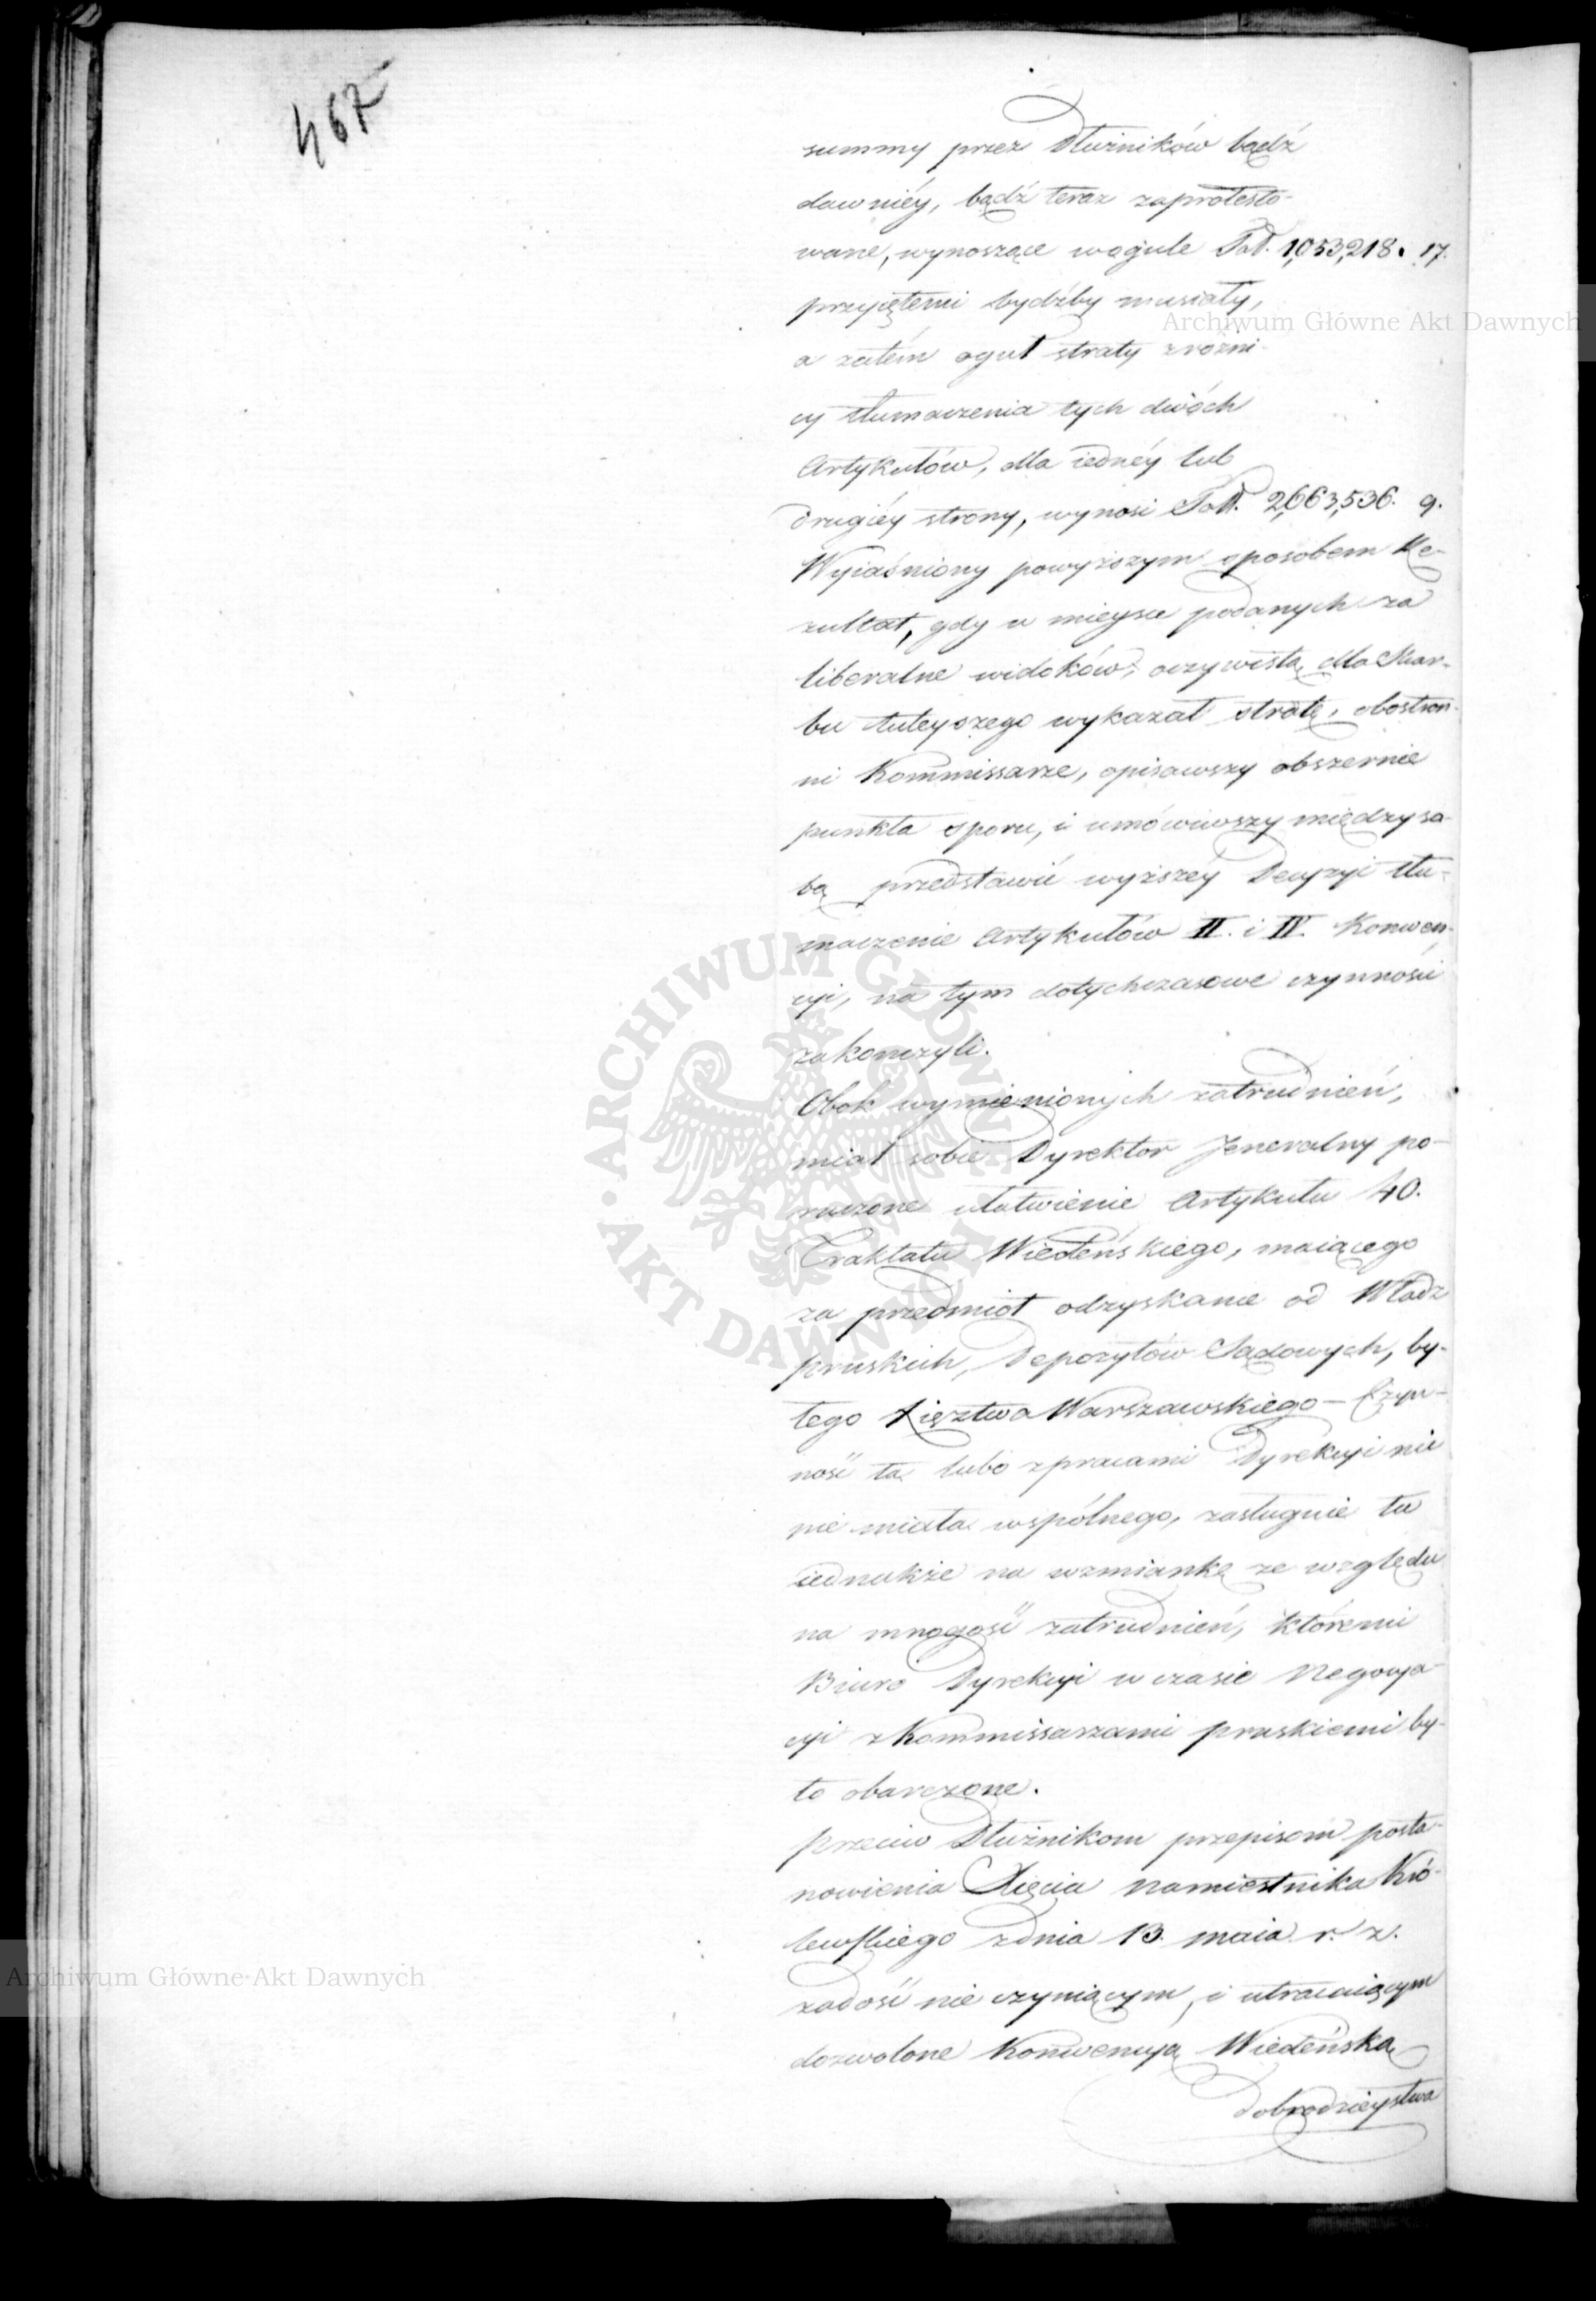 467
summy przez Dłużników bądź
dawniéy, bądź teraz zaprotesto-
wane, wynoszące wogule Tal. 1,053,218. 17.
przyiętemi bydźby musiały,
a zatém oguł straty z różni-
cy tłumaczenia tych dwóch
Artykułów, dla iednéy lub
drugiéy strony, wynosi Tal. 2,663,536. 9.
Wyiaśniony powyższym sposobem Re-
zultat, gdy w mieysce podanych za
liberalne widoków, oczywistą dla Skar-
bu tuteyszego wykazał stratę, obostron-
ni Kommissarze, opisawszy obszernie
punkta sporu, i umówiwszy między so-
bą przedstawić wyższéy Decyzyi tłu-
maczenie Artykułów II. i IV. Konwen-
cyi, na tym dotychczasowe czynności
zakonczyli.
Obok wymienionych zatrudnień,
miał sobie Dyrektor Jeneralny po-
ruczone ułatwienie Artykułu 40.
Traktatu Wiedeńskiego, maiącego
za przedmiot odzyskanie od Władz
pruskich, Depozytów Sądowych, by-
łego Xięztwa Warszawskiego – Czyn-
ność ta lubo z pracami Dyrekcyi nic
nie miała wspólnego, zasługuie tu
iednakże na wzmiankę ze względu
na mnogość zatrudnień, któremi
Biuro Dyrekcyi w czasie Negocya-
cyi z Kommissarzami pruskiemi by-
ło obarczone.
Przeciw Dłużnikom przepisom posta-
nowienia Xięcia Namiestnika Kró-
lewskiego z dnia 13. maia r. z.
zadość nie czyniącym, i utracaiącym
dozwolone Konwencyą Wiedeńską
Dobrodzieystwa
Archiwum Główne Akt Dawnych
Archiwum Główne Akt Dawnych
ARCHIWUM GŁÓWNE AKT DAWNYCH